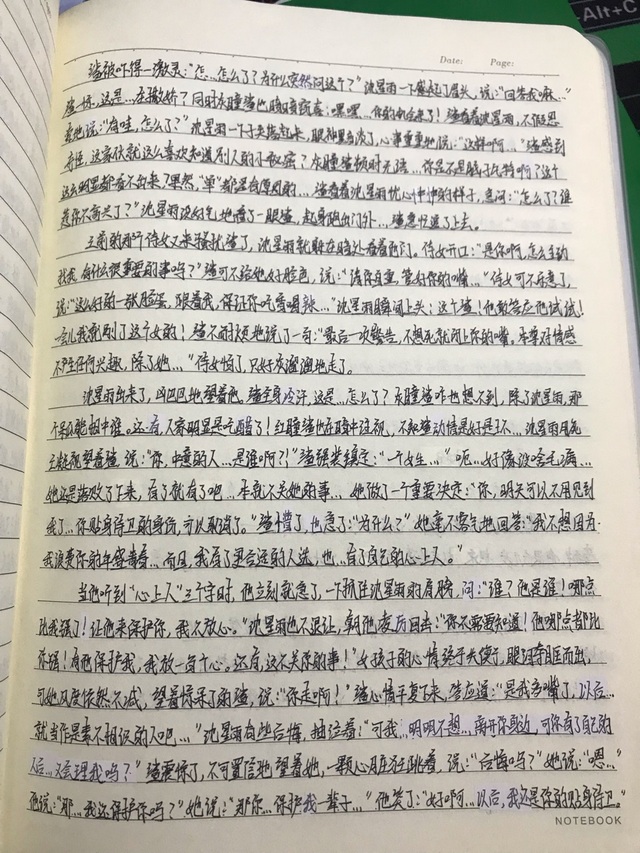 Alt+C
Date: Page:
渣被吓得一激灵："怎…怎么了？为什么突然问这个？"沈星雨一下撅起了眉头，说："回答我嘛…"
渣一惊，这是…在撒娇？同时永瞳渣也暗暗窃喜：嘿嘿，你的机会来了！渣看着沈星雨，不假思
索地说："有哇，怎么了？"沈星雨一下子失落起来，眼神黯淡了，心事重重地说："这样啊…"渣感到
奇怪，这家伙就这么喜欢知道别人的小秘密？永瞳渣顿时无语…你是不是脑子瓦特啊？这个
这么明显都看不出来？果然，"单"都是有原因的…渣看着沈星雨忧心忡忡的样子，急问："怎么了？谁
惹你不高兴了？"沈星雨没好气地瞪了一眼渣，起身跑出门外…渣急忙追了上去。
之前的那个侍女又来骚扰渣了，沈星雨就躲在暗处看着他们。侍女开口："是你啊，怎么主动
找我，有什么很重要的事吗？"渣可不给她好脸色，说："请你自重，管好你的嘴…"侍女可不乐意了，
说："这么好的一张脸蛋，跟着我，保证你吃香喝辣…"沈星雨瞬间上头：这个渣！他敢答应他试试！
一会儿我就刷了这个女的！渣不耐烦地说了一句："最后一次警告，不想死就闭上你的嘴。本尊对情感
不产生任何兴趣，除了她…"侍女怕了，只好灰溜溜地走了。
沈星雨出来了，凶巴巴地望着他，渣全身冷汗，这是…怎么了？永瞳渣咋也想不到，除了沈星雨，那
个是众能相中谁。还看，不容明显是吃醋了！红瞳渣也在暗中注视，不知渣动情是好是坏…沈星雨用死
亡凝视望着渣，说："你，中意的人…是谁啊？！"渣强装镇定："一个女生…"呃…好像没啥毛病…
她还是落败了下来，有了就有了吧…本就不关她的事…她做了一个重要决定："你，明天可以不用见到
我了…你贴身侍卫的身份，可以取消了。"渣懵了，也急了："为什么？"她毫不客气地回答："我不想因为
我浪费你的年轻青春…而且，我有了更合适的人选，也…有了自己的心上人。"
当他听到"心上人"三个字时，他立刻就急了，一下抓住沈星雨的肩膀，问："谁？他是谁！哪点
比我强了！让他来保护你，我不放心。"沈星雨也不退让，朝他凌厉回击："你不需要知道！他哪点都比
你强！有他保护我，我放一百个心。还有，这不关你的事！"女孩子的心情终于失控了，眼泪夺眶而出，
可她风度依然不减，望着惊呆了的渣，说："你走啊！"渣心情平复下来，答应道："是我多嘴了，以后…
就当作是素不相识的人吧…"沈星雨有些后悔，抽泣着："可我…明明不想…离开你身边，可你有了自己的
人后…又会理我吗？"渣震惊了，不可置信地望着她，一颗心脏狂跳着，说："后悔吗？"她说："嗯…"
他说："那…我还保护你吗？"她说："那你…保护我一辈子…"他笑了："好啊…以后，我还是你的贴身侍卫。"
NOTEBOOK